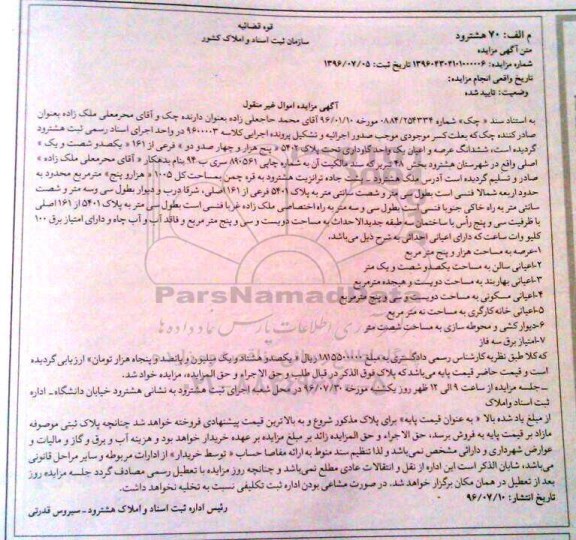 قوه قضائیه
سازمان ثبت اسناد و املاک کشور
م الف: ۷۰ هشترود
متن آگهی مزایده
شماره مزایده: ۱۳۹۶۰۴۳۰۴۱۰۱۰۰۰۰۰۶ تاریخ ثبت: ۱۳۹۶/۰۷/۰۵
تاریخ واقعی انجام مزایده:
وضعیت: تایید شده
آگهی مزایده اموال غیر منقول
به استناد سند « چک» شماره ۰۸۸۴/۲۵۴۳۳۴ مورخه ۹۶/۰۱/۱۰ آقای محمد حاجعلی زاده بعنوان دارنده چک و آقای محرمعلی ملک زاده بعنوان
صادر کننده چک که بعلت کسر موجودی موجب صدور اجرائیه و تشکیل پرونده اجرایی کلاسه ۹۶۰۰۰۰۳ در واحد اجرای اسناد رسمی ثبت هشترود
گردیده است، ششدانگ عرصه و اعیان یک واحد گاوداری تحت پلاک ۵۴۰۲ « پنج هزار و چهار صد دو » فرعی از ۱۶۱ « یکصدو شصت و یک »
اصلی واقع در شهرستان هشترود بخش ۲۸ تبریز که سند مالکیت آن به شماره چاپی ۸۹۰۵۶۱ سری ب ۹۴ بنام بدهکار « آقای محرمعلی ملک زاده »
صادر و تسلیم گردیده است آدرس ملک هشترود سمت جاده ترانزیت هشترود به قره چمن بمساحت کل ۱۰۰۵ « هزارو پنج» مترمربع محدود به
حدود اربعه شمالا فنسی است بطول سی متر و شصت سانتی متر به پلاک ۵۴۰۱ فرعی از ۱۶۱ اصلی، شرقا درب و دیوار بطول سی وسه متر و شصت
سانتی متر به راه خاکی جنوبا فنسی است بطول سی وسه متر به راه اختصاصی ملک زاده غربا فنسی است بطول سی متر به پلاک ۵۴۰۱ از ۱۶۱ اصلی
با ظرفیت سی و پنج رأس با ساختمان سه طبقه جدیدالاحداث به مساحت دویست و سی و پنج متر مربع و فاقد آب و آب چاه و دارای امتیاز برق ۱۰۰
کلیو وات ساعت که دارای اعیانی احداثی به شرح ذیل می‌باشد.
۱-عرصه به مساحت هزار و پنج متر مربع
۲-اعیانی سالن به مساحت یکصدو شصت و یک متر
۳-اعیانی بهاربند به مساحت دویست و هیجده مترمربع
۴-اعیانی مسکونی به مساحت دویست و سی و پنج مترمربع
۵-اعیانی خانه کارگری به مساحت نه متر مربع
۶-دیوار کشی و محوطه سازی به مساحت شصت متر
۷-امتیاز برق سه فاز
که کلا طبق نظریه کارشناس رسمی دادگستری به مبلغ ۱۸۱۵۵۰۰۰۰۰ ریال « یکصدو هشتاد و یک میلیون و پانصد و پنجاه هزار تومان» ارزیابی گردیده
است و قیمت حاضر قیمت پایه می‌باشد که پلاک فوق الذکر در قبال طلب و حق الاجراء و حق المزایده، مزایده خواد شد.
-جلسه مزایده از ساعت ۹ الی ۱۲ ظهر روز یکشنبه مورخه ۹۶/۰۷/۳۰ در محل شعبه اجرای ثبت هشترود به نشانی هشترود خیابان دانشگاه- اداره
ثبت اسناد واملاک
از مبلغ یاد شده بالا « به عنوان قیمت پایه» برای پلاک مذکور شروع و به بالاترین قیمت پیشنهادی فروخته خواهد شد چنانچه پلاک ثبتی موصوفه
مازاد بر قیمت پایه به فروش برسد، حق الاجراء و حق المزایده زائد بر مبلغ مزایده بر عهده خریدار خواهد بود و هزینه آب و برق و گاز و مالیات و
عوارض شهرداری و دارائی مشخص نمی‌باشد و لذا تنظیم سند منوط به ارائه مفاصا حساب « توسط خریدار» از ادارات مربوطه و سایر مراحل قانونی
می‌باشد، شایان الذکر است این اداره از نقل و انتقالات عادی مطلع نمی‌باشد و چنانچه روز مزایده با تعطیل رسمی مصادف گردد جلسه مزایده روز
بعد از تعطیل در همان مکان برگزار خواهد شد. در صورت مشاعی بودن اداره ثبت تکلیفی نسبت به تخلیه نخواهد داشت.
تاریخ انتشار: ۹۶/۰۷/۱۰
رئیس اداره ثبت اسناد و املاک هشترود - سیروس قدرتی
ParsNamadData